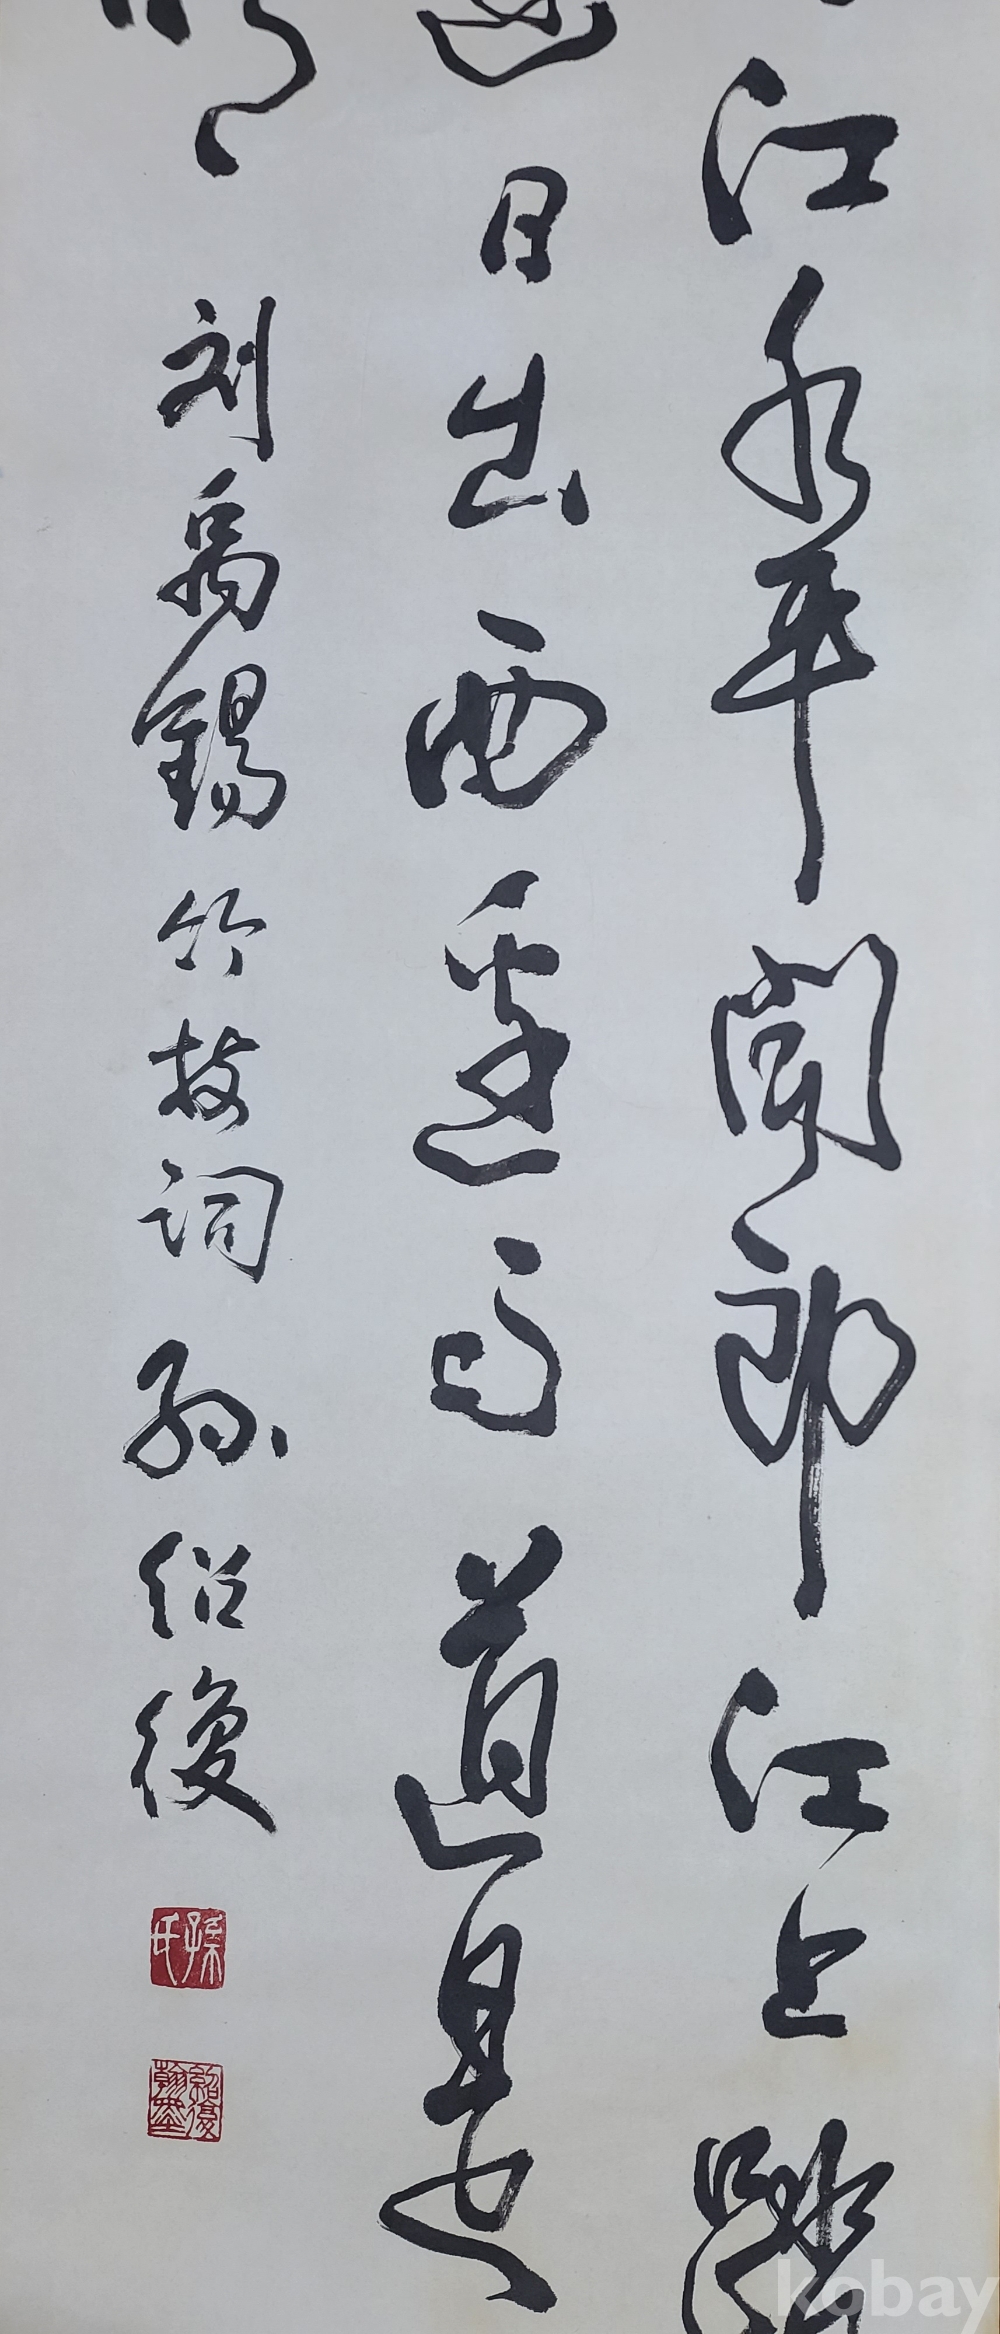 江水平聞郎江上踏
日出西边雨道是无
刘禹錫竹枝词 孙绍復
孫氏
紹復翰墨
kobay